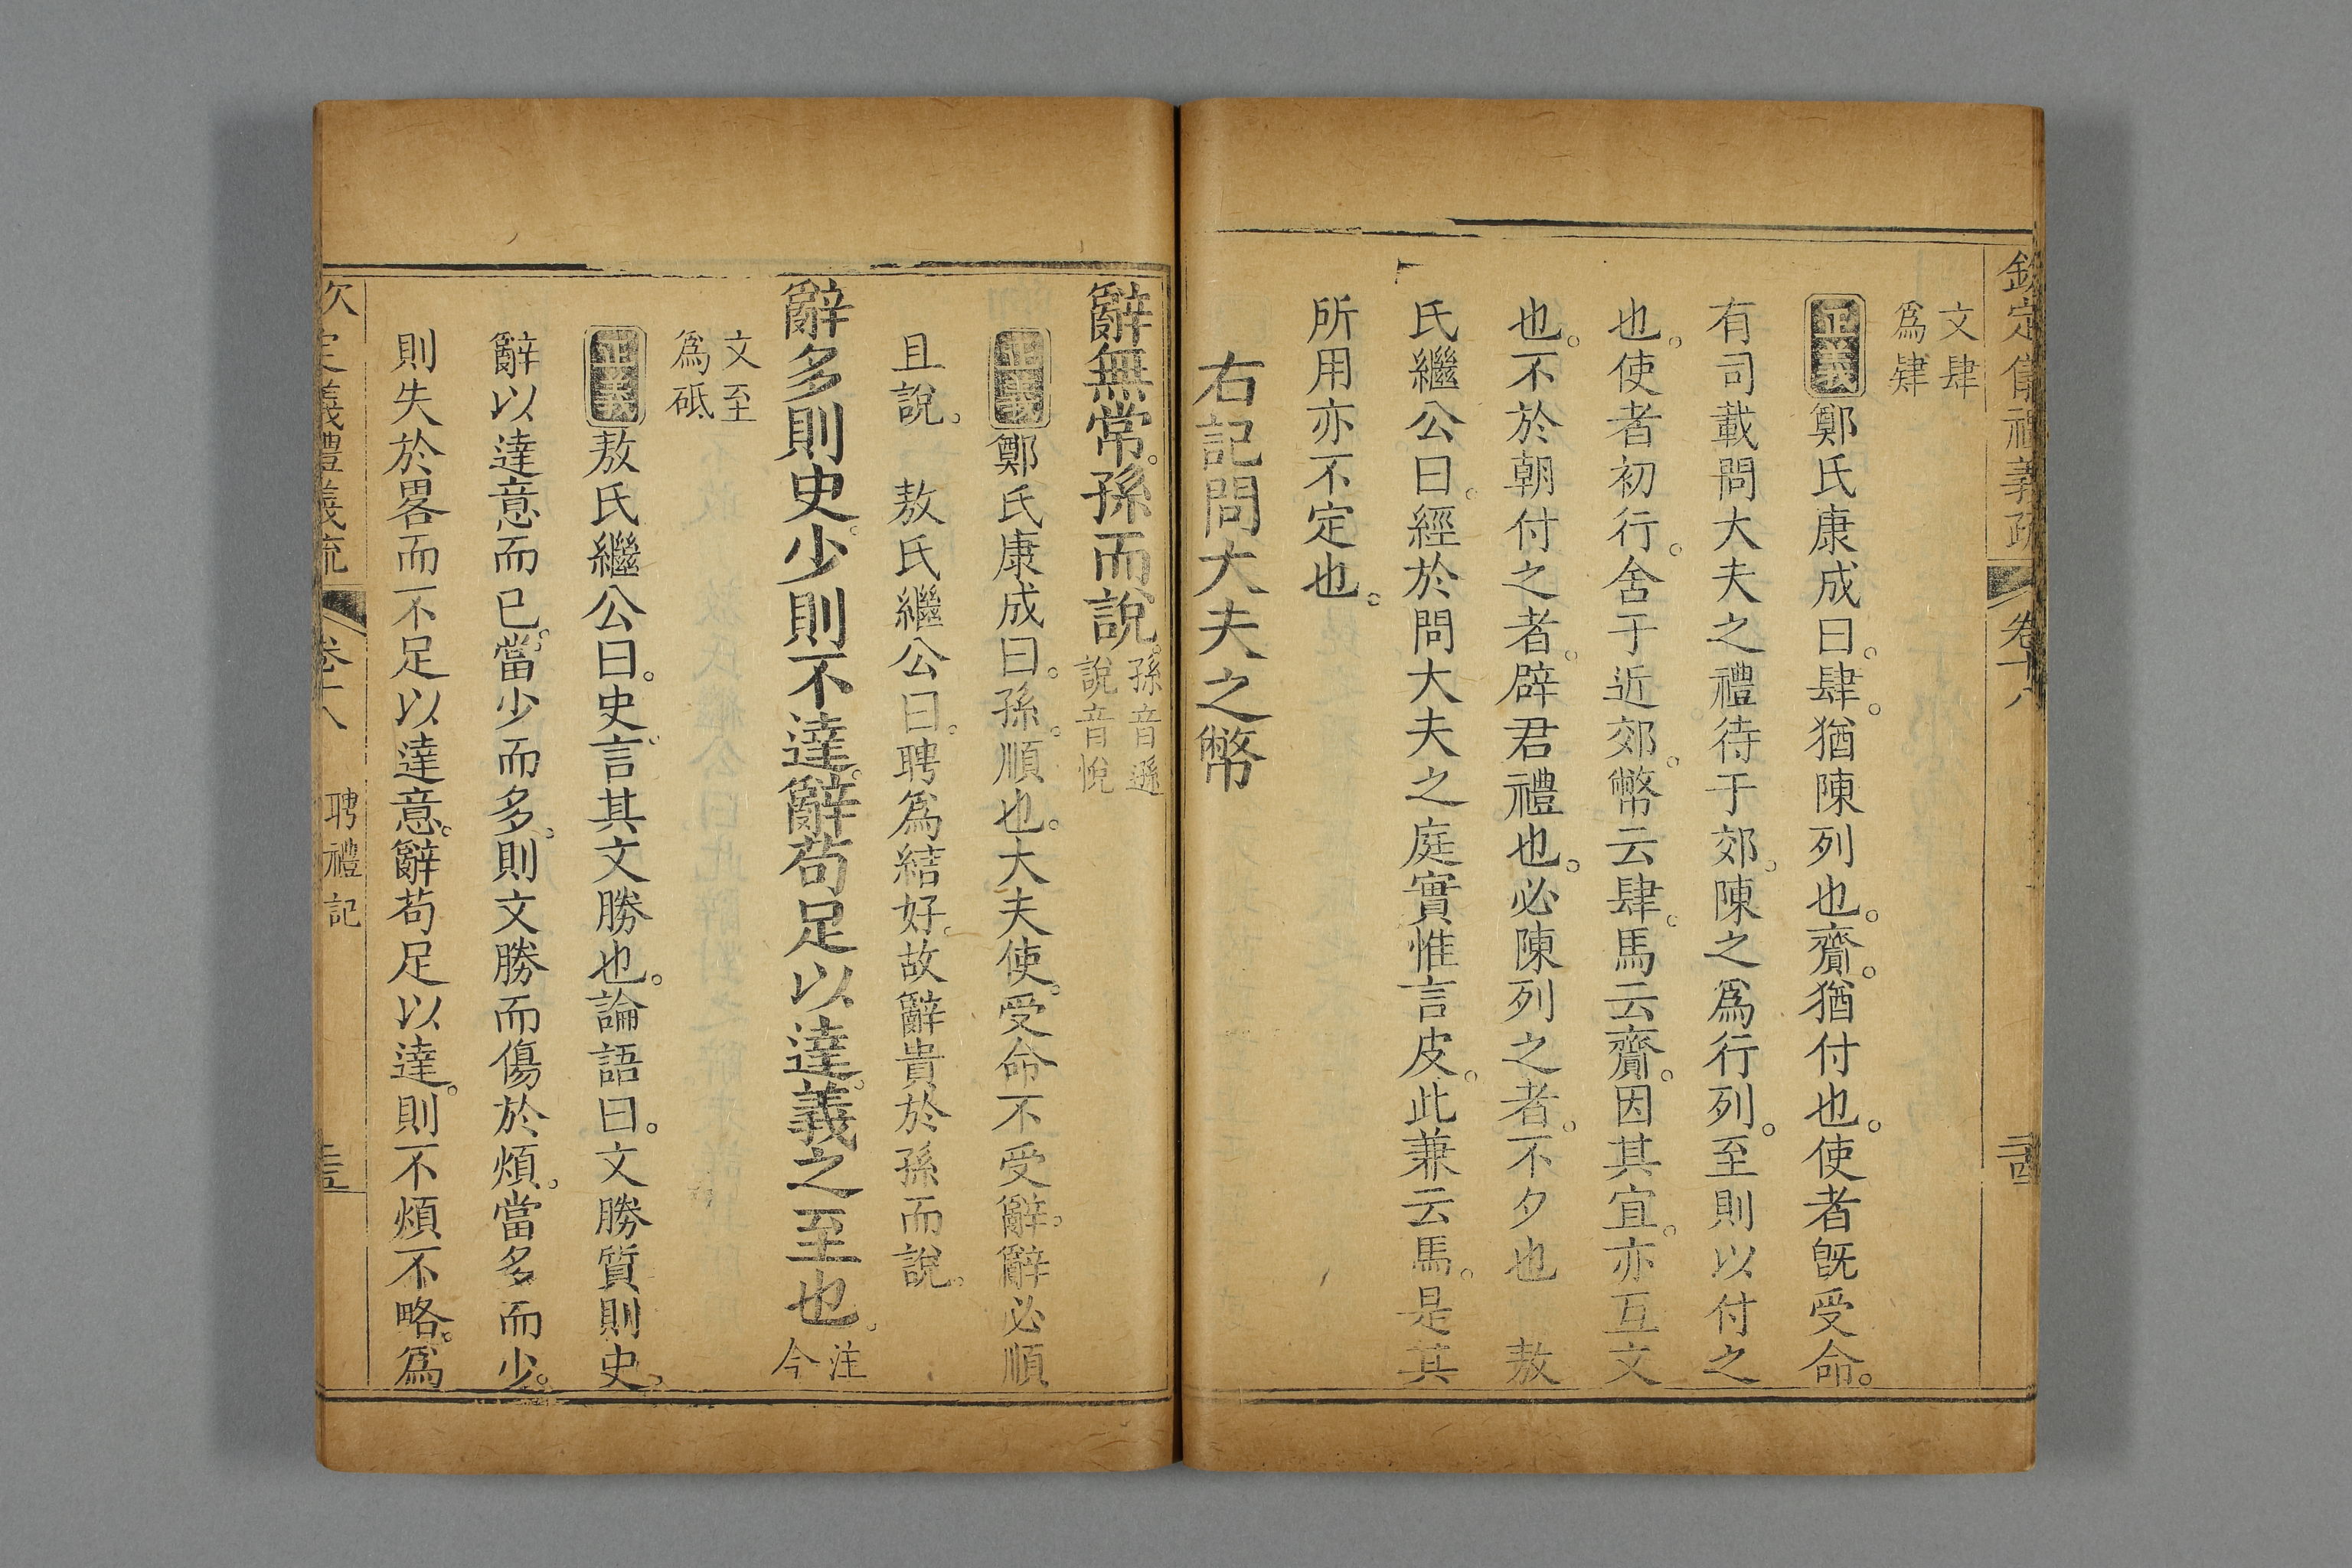 欽定儀禮義疏 卷十八
文肆
爲肄
正義鄭氏康成曰。肆。猶陳列也。齎。猶付也。使者旣受命。
有司載問大夫之禮待于郊。陳之爲行列。至則以付之
也。使者初行。舍于近郊。幣云肆。馬云齎。因其宜。亦互文
也。不於朝付之者。辟君禮也。必陳列之者。不夕也 敖
氏繼公曰。經於問大夫之庭實惟言皮。此兼云馬。是其
所用亦不定也。
右記問大夫之幣
辭無常。孫而說。孫音遜
說音悅
正義鄭氏康成曰。孫。順也。大夫使。受命不受辭。辭必順
且說。 敖氏繼公曰。聘爲結好。故辭貴於孫而說。
辭多則史。少則不達。辭苟足以達。義之至也。注
今
文至
爲砥
正義敖氏繼公曰。史。言其文勝也。論語曰。文勝質則史。
辭以達意而已。當少而多。則文勝而傷於煩。當多而少。
則失於畧而不足以達意。辭苟足以達。則不煩不略。爲
聘禮記